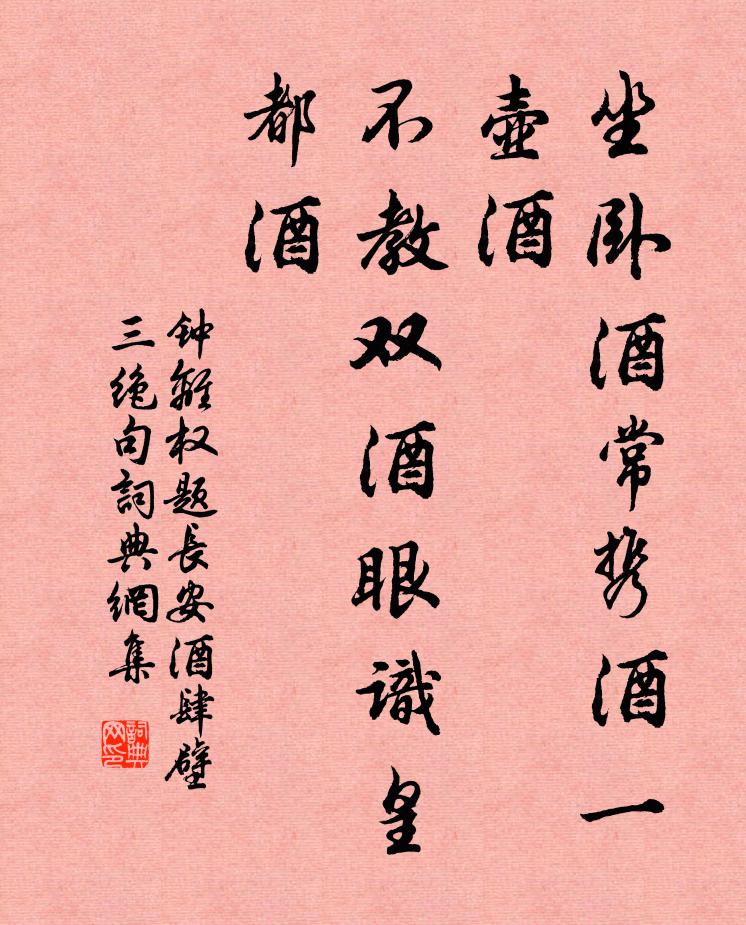 坐卧酒常携酒一
壶酒
不教双酒眼識皇
都酒
钟離权题長安酒肆壁
三绝句詞典網集
詞典网印